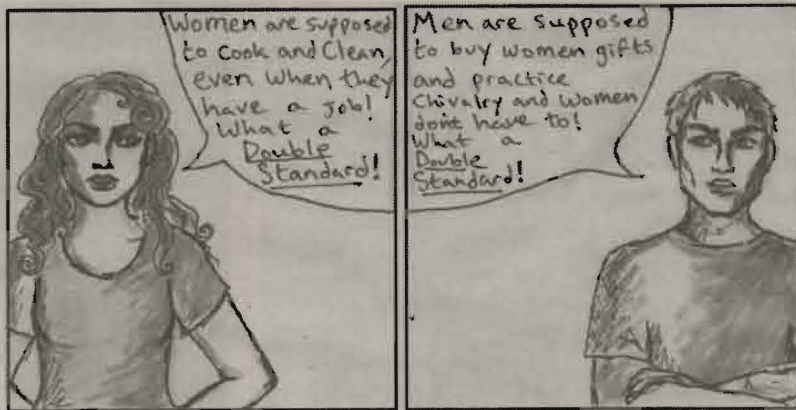 Women are supposed
to Cook and Clean,
even when they
have a job!
What a
Double
Standard!
Men are supposed
to buy women gifts
and practice
Chivalry and women
don't have to!
What a
Double
Standard!